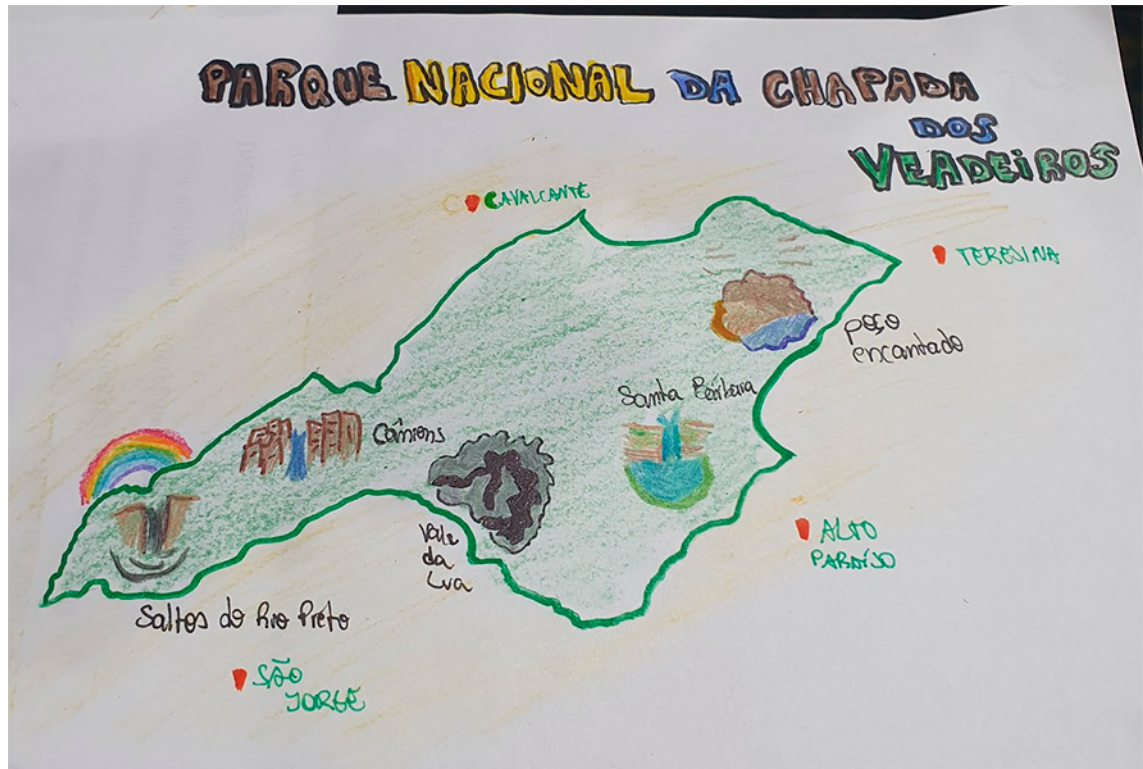 PARQUE NACIONAL DA CHAPADA
DOS
VEADEIROS
CAVALCANTE
TERESINA
poço
encantado
Santa Bárbara
Cânions
Vale
da
Lua
ALTO
PARAÍSO
Saltos do Rio Preto
SÃO
JORGE